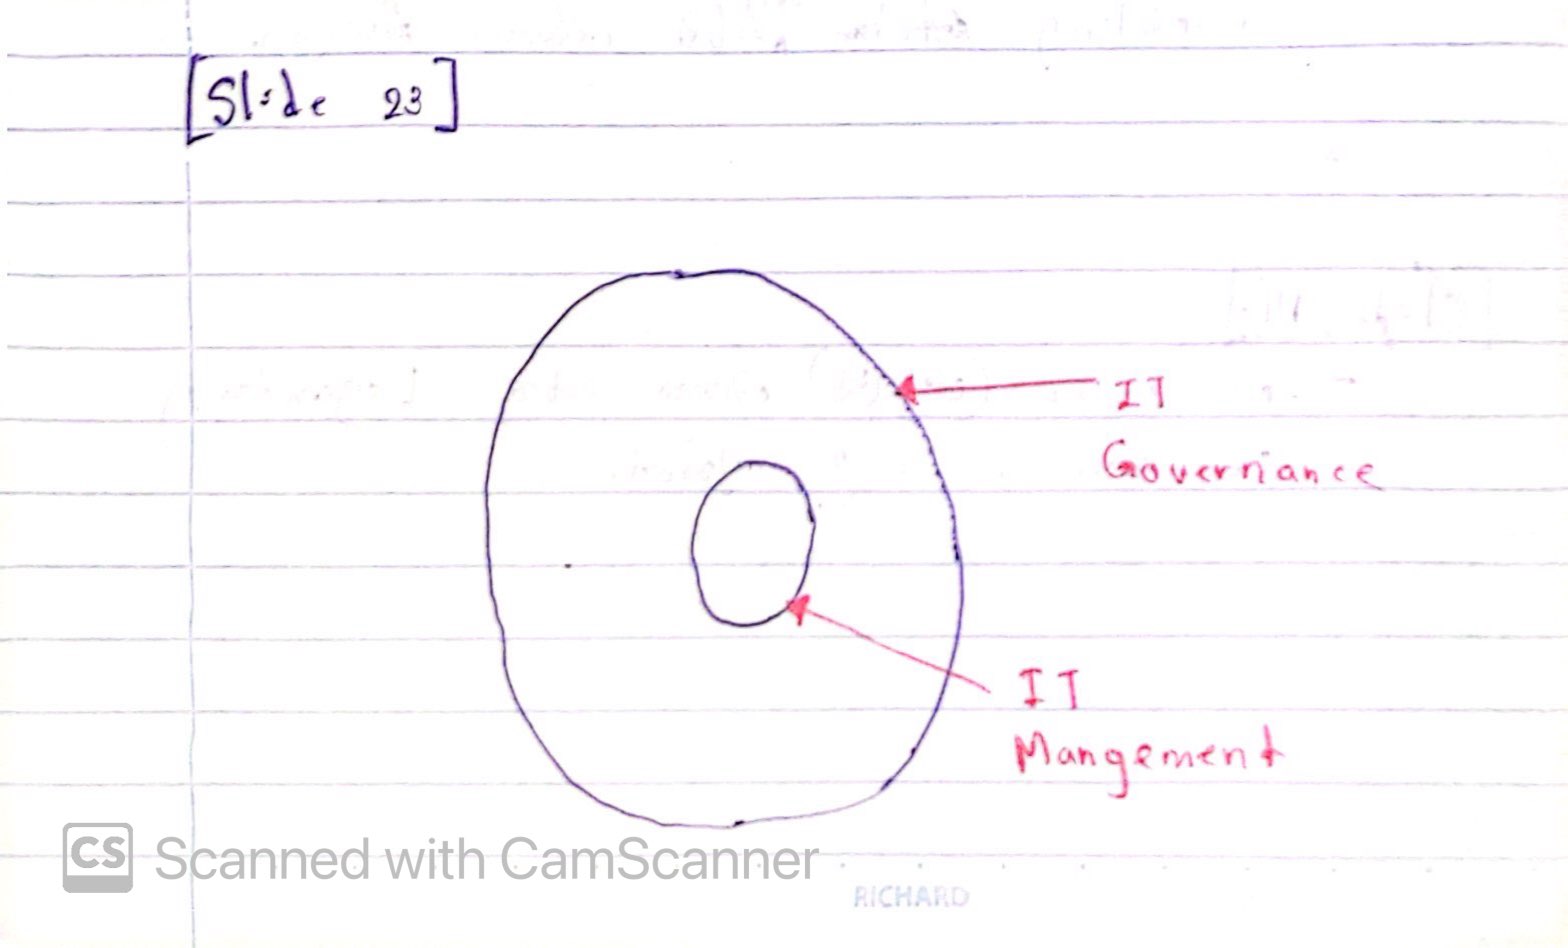 [Slide 23]
IT
Governance
IT
Mangement
CS Scanned with CamScanner
RICHARD